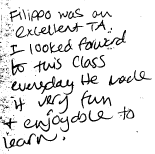 Filippo was an
excellent TA.
I looked forward
to this class
everyday He made
it very fun
+ enjoyable to
learn.